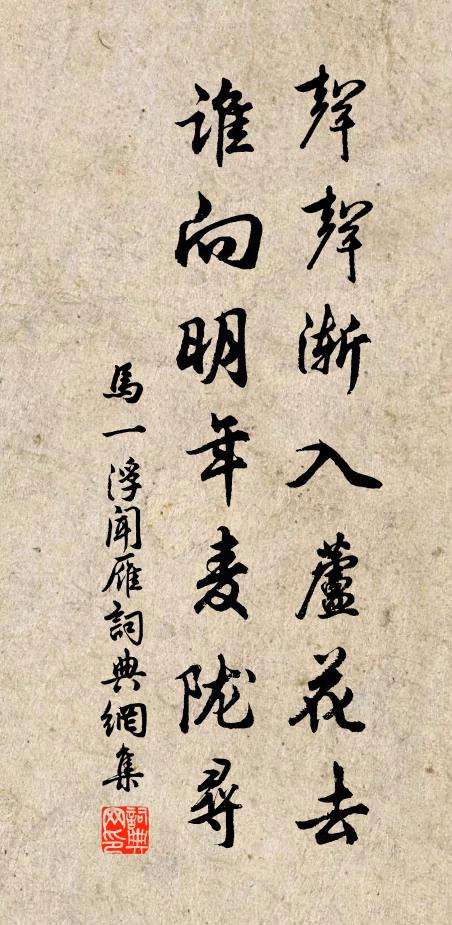 聲聲漸入蘆花去
誰向明年麦陇尋
馬一浮聞雁詞典網集
詞典網印